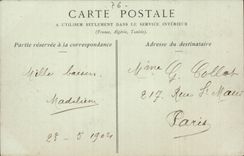 76.
CARTE POSTALE
A UTILISER SEULEMENT DANS LE SERVICE INTÉRIEUR
(France, Algérie, Tunisie).
Partie réservée à la correspondance
Adresse du destinataire
Mille baisers
Madeleine
23-5 1904
Mme G. Collot
217, Rue St
Paris